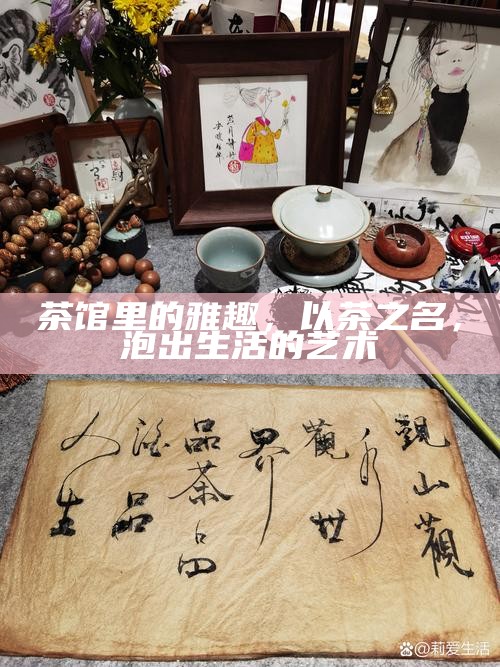 茶馆里的雅趣，以茶之名，
泡出生活的艺术
觀山觀
水
觀世
界
品茶品
酒品
人生
@莉爱生活